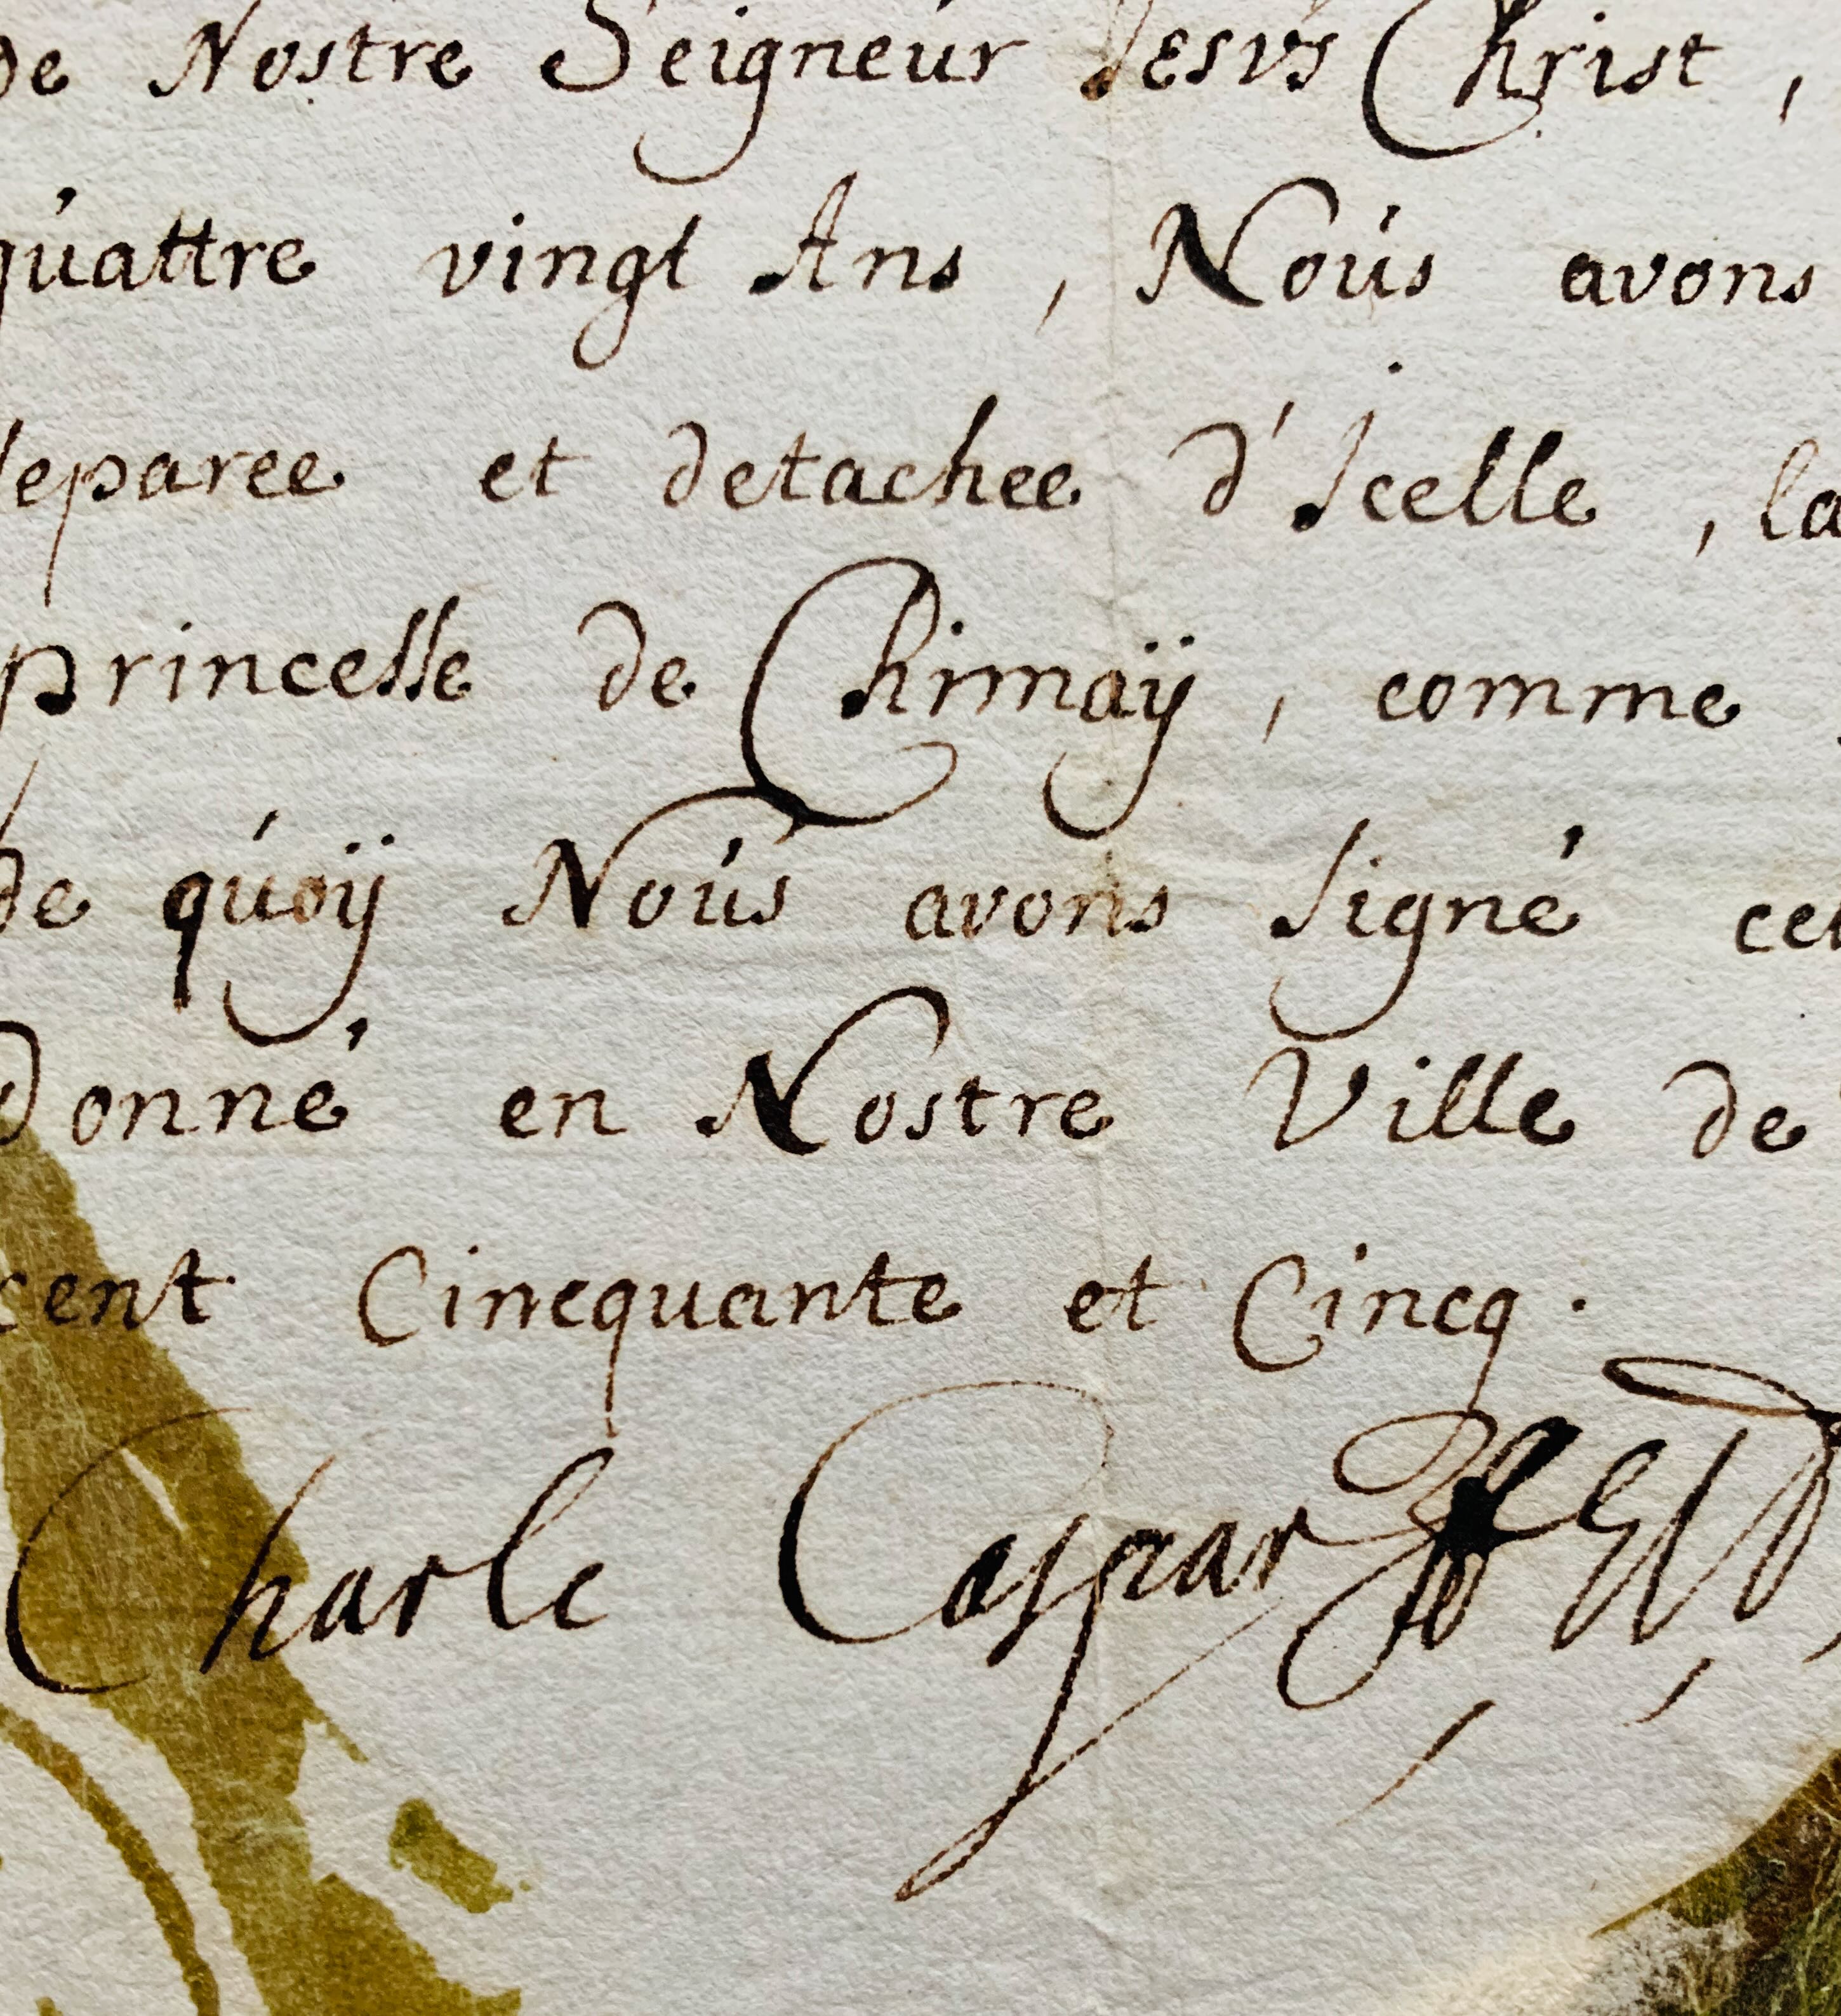 de Nostre Seigneur Jesus Christ,
quattre vingt Ans, Nous avons
separee et detachee d'Icelle, la
princesse de Chimaÿ, comme
de quoÿ Nous avons signé cet
Donné en Nostre Ville de
cent Cincquante et Cincq.
Charle Caspar